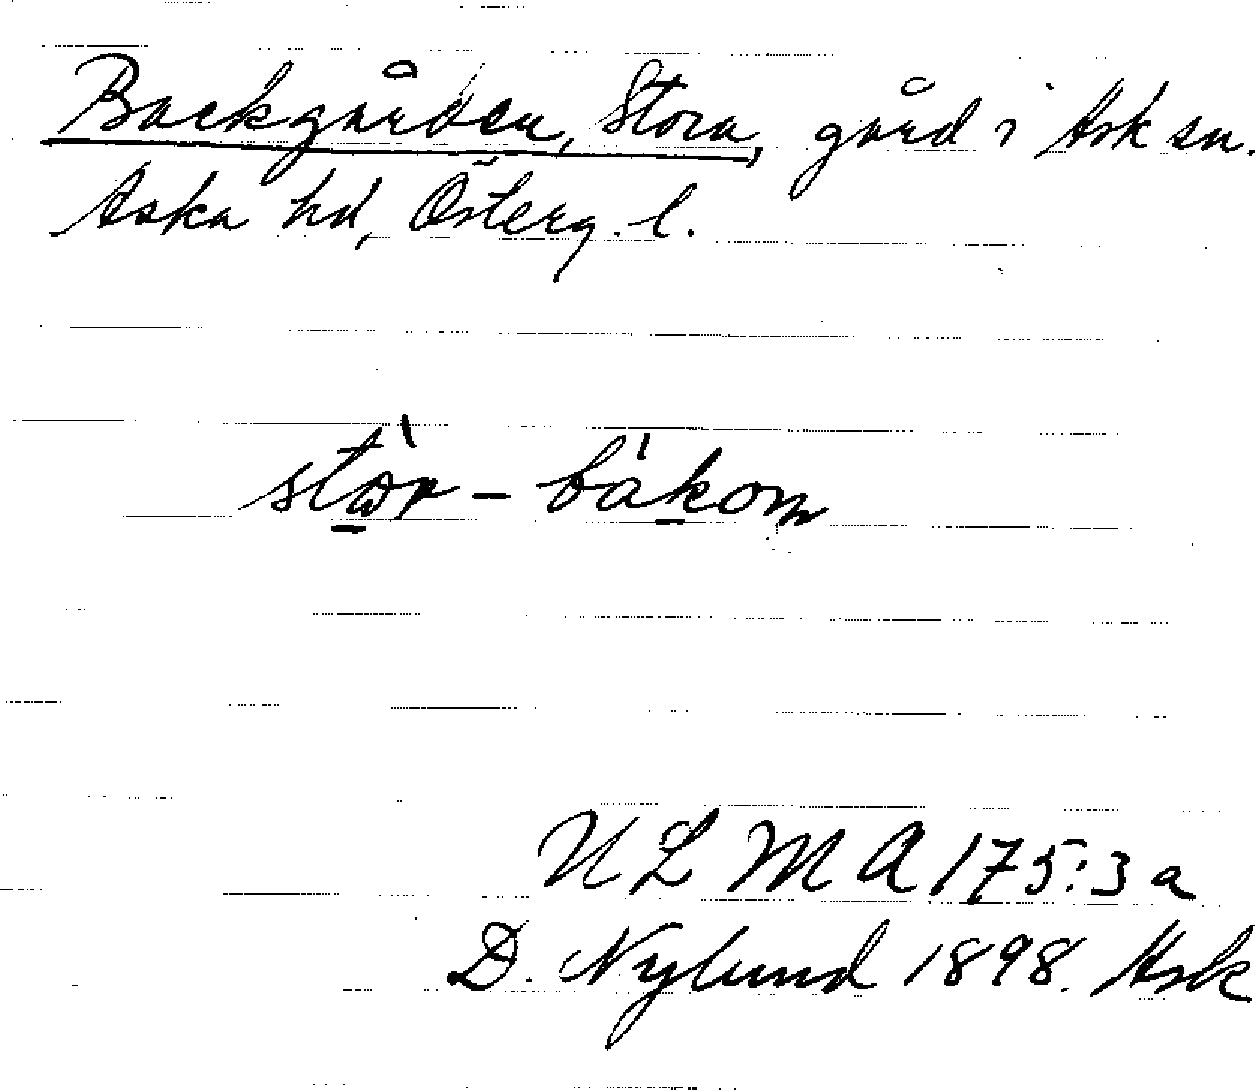 Backgården, Stora, gård i Ask sn.
Aska hd, Österg. l.
stòr - bákom
ULMA 175:3a
D. Nylund 1898. Ask